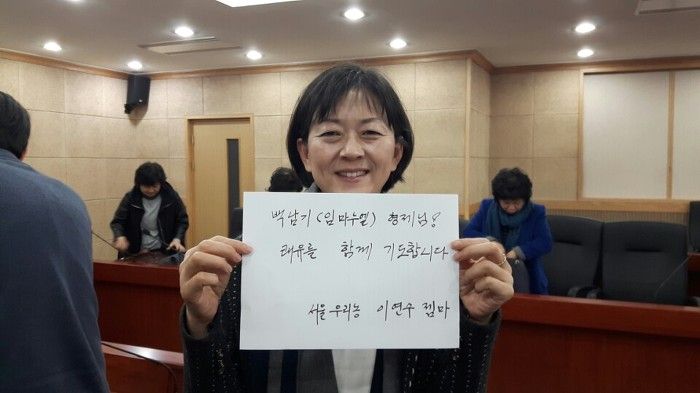 백남기(임마누엘) 형제님!
쾌유를 함께 기도합니다
서울 우리농 이연수 젬마